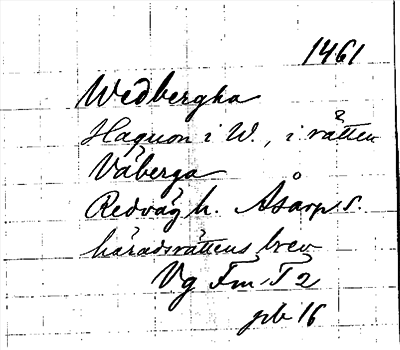 1461
Wedbergha
Haquon i W., i rätten
Väberga
Redväg h. Åsarp s.
häradsrättens brev
Vg Fm T 2
pb 16